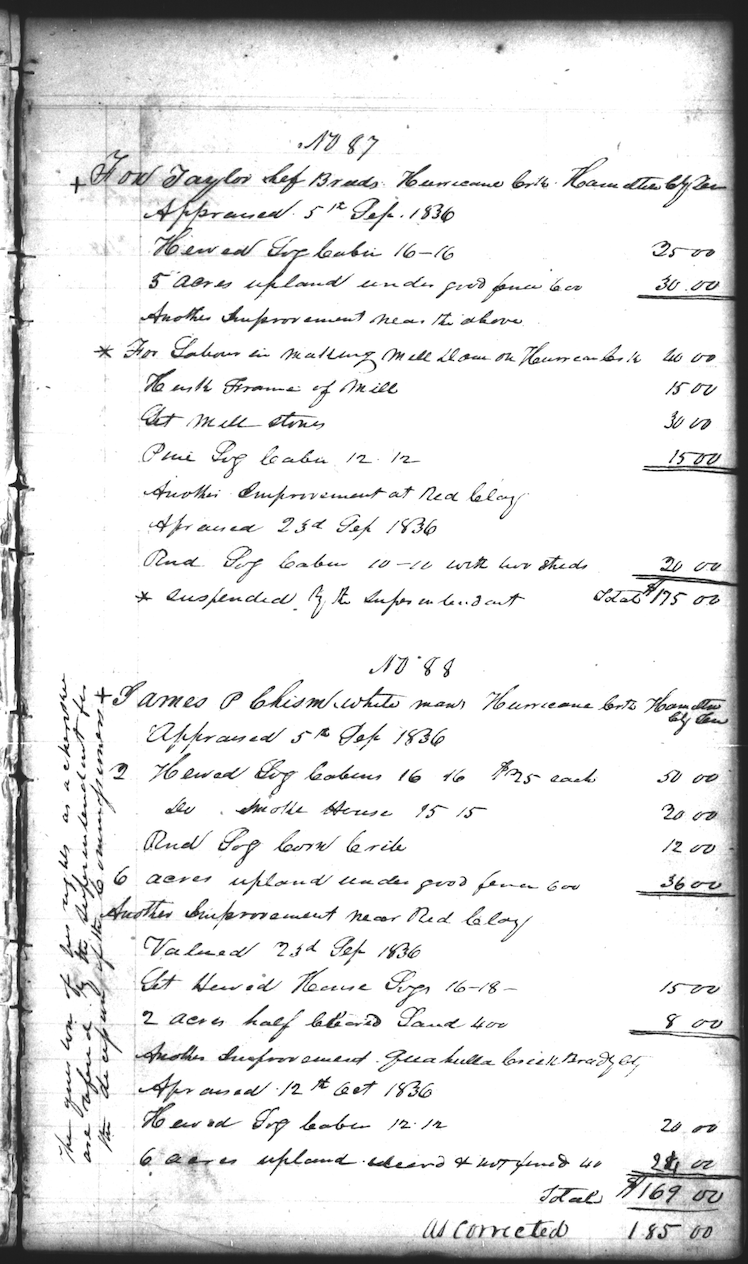 No 87
+ Fox Taylor half Breed Hurricane Crk Hamilton Cty Ten
Appraised 5th Sep. 1836
Hewed Log Cabin 16-16 25 00
5 acres upland under good fence 600 30.00
Another Improvement near the above
* For Labour in making Mill Dam on Hurrican Crk 40 00
Husk Frame of Mill 15 00
Set Mill stones 30 00
Pine Log Cabin 12.12 15 00
Another Improvement at Red Clay
Apraised 23d Sep 1836
Rnd Log Cabin 10-10 with two sheds 20 00
* suspended by the Superintendant Total $175 00
No 88
+ James P Chism white man Hurricane Crk Hamilton Cty Ten
Appraised 5th Sep 1836
2 Hewed Log Cabins 16 16 $25 each 50 00
Do Smoke House 15 15 20 00
Rnd Log Corn Crib 12 00
6 acres upland under good fence 600 36 00
Another Improvement near Red Clay
Valued 23d Sep 1836
Set Hewed House Logs 16-18- 15 00
2 acres half cleared Land 400 8 00
Another Improvement Quahulla Creek Brady Cty
Apraised 12th Oct 1836
Hewed Log Cabin 12.12 20 00
6 acres upland cleared & not fenced 40 24 00
Total $169 00
as corrected 185 00
The question of his rights as a cherokee
are refered by the Superintendant for
the decision of the Commissioners